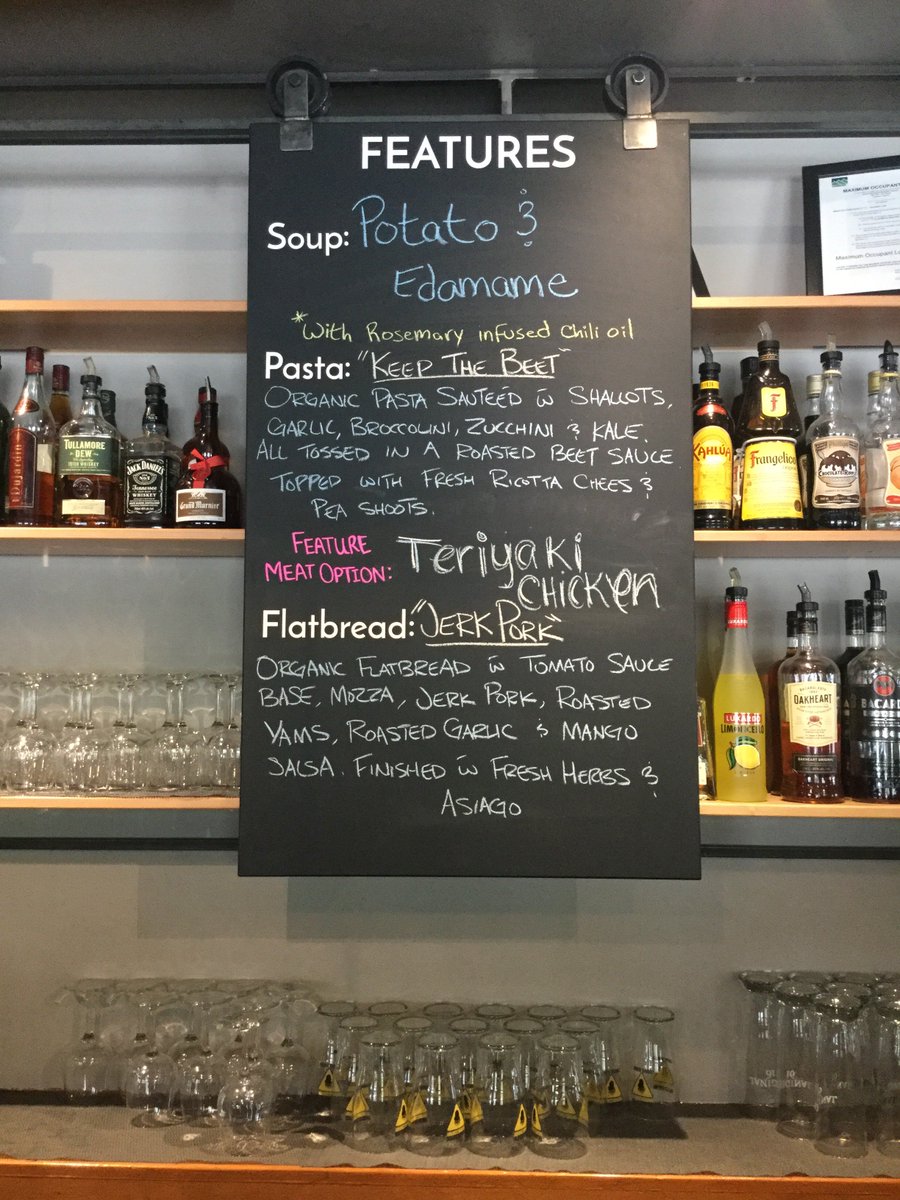 FEATURES
Soup: Potato &
Edamame
*With Rosemary infused Chili oil
Pasta: "KEEP THE BEET"
ORGANIC PASTA SAUTEÉD w SHALLOTS,
GARLIC, BROCCOLINI, ZUCCHINI & KALE.
ALL TOSSED IN A ROASTED BEET SAUCE
TOPPED WITH FRESH RICOTTA CHEES &
PEA SHOOTS.
FEATURE
MEAT OPTION: Teriyaki
CHICKEN
Flatbread: "JERK PORK"
ORGANIC FLATBREAD w TOMATO SAUCE
BASE, MOZZA, JERK PORK, ROASTED
YAMS, ROASTED GARLIC & MANGO
SALSA. FINISHED w FRESH HERBS &
ASIAGO
MAXIMUM OCCUPANT
Maximum Occupant Lo
Dujardin
TULLAMORE
DEW
IRISH WHISKEY
JACK DANIEL'S
Tennessee
WHISKEY
Grand Marnier
KAHLÚA
Frangelico
LUXARDO
LIMONCELLO
BACARDI
OAKHEART
OAKHEART ORIGINAL
BACARD